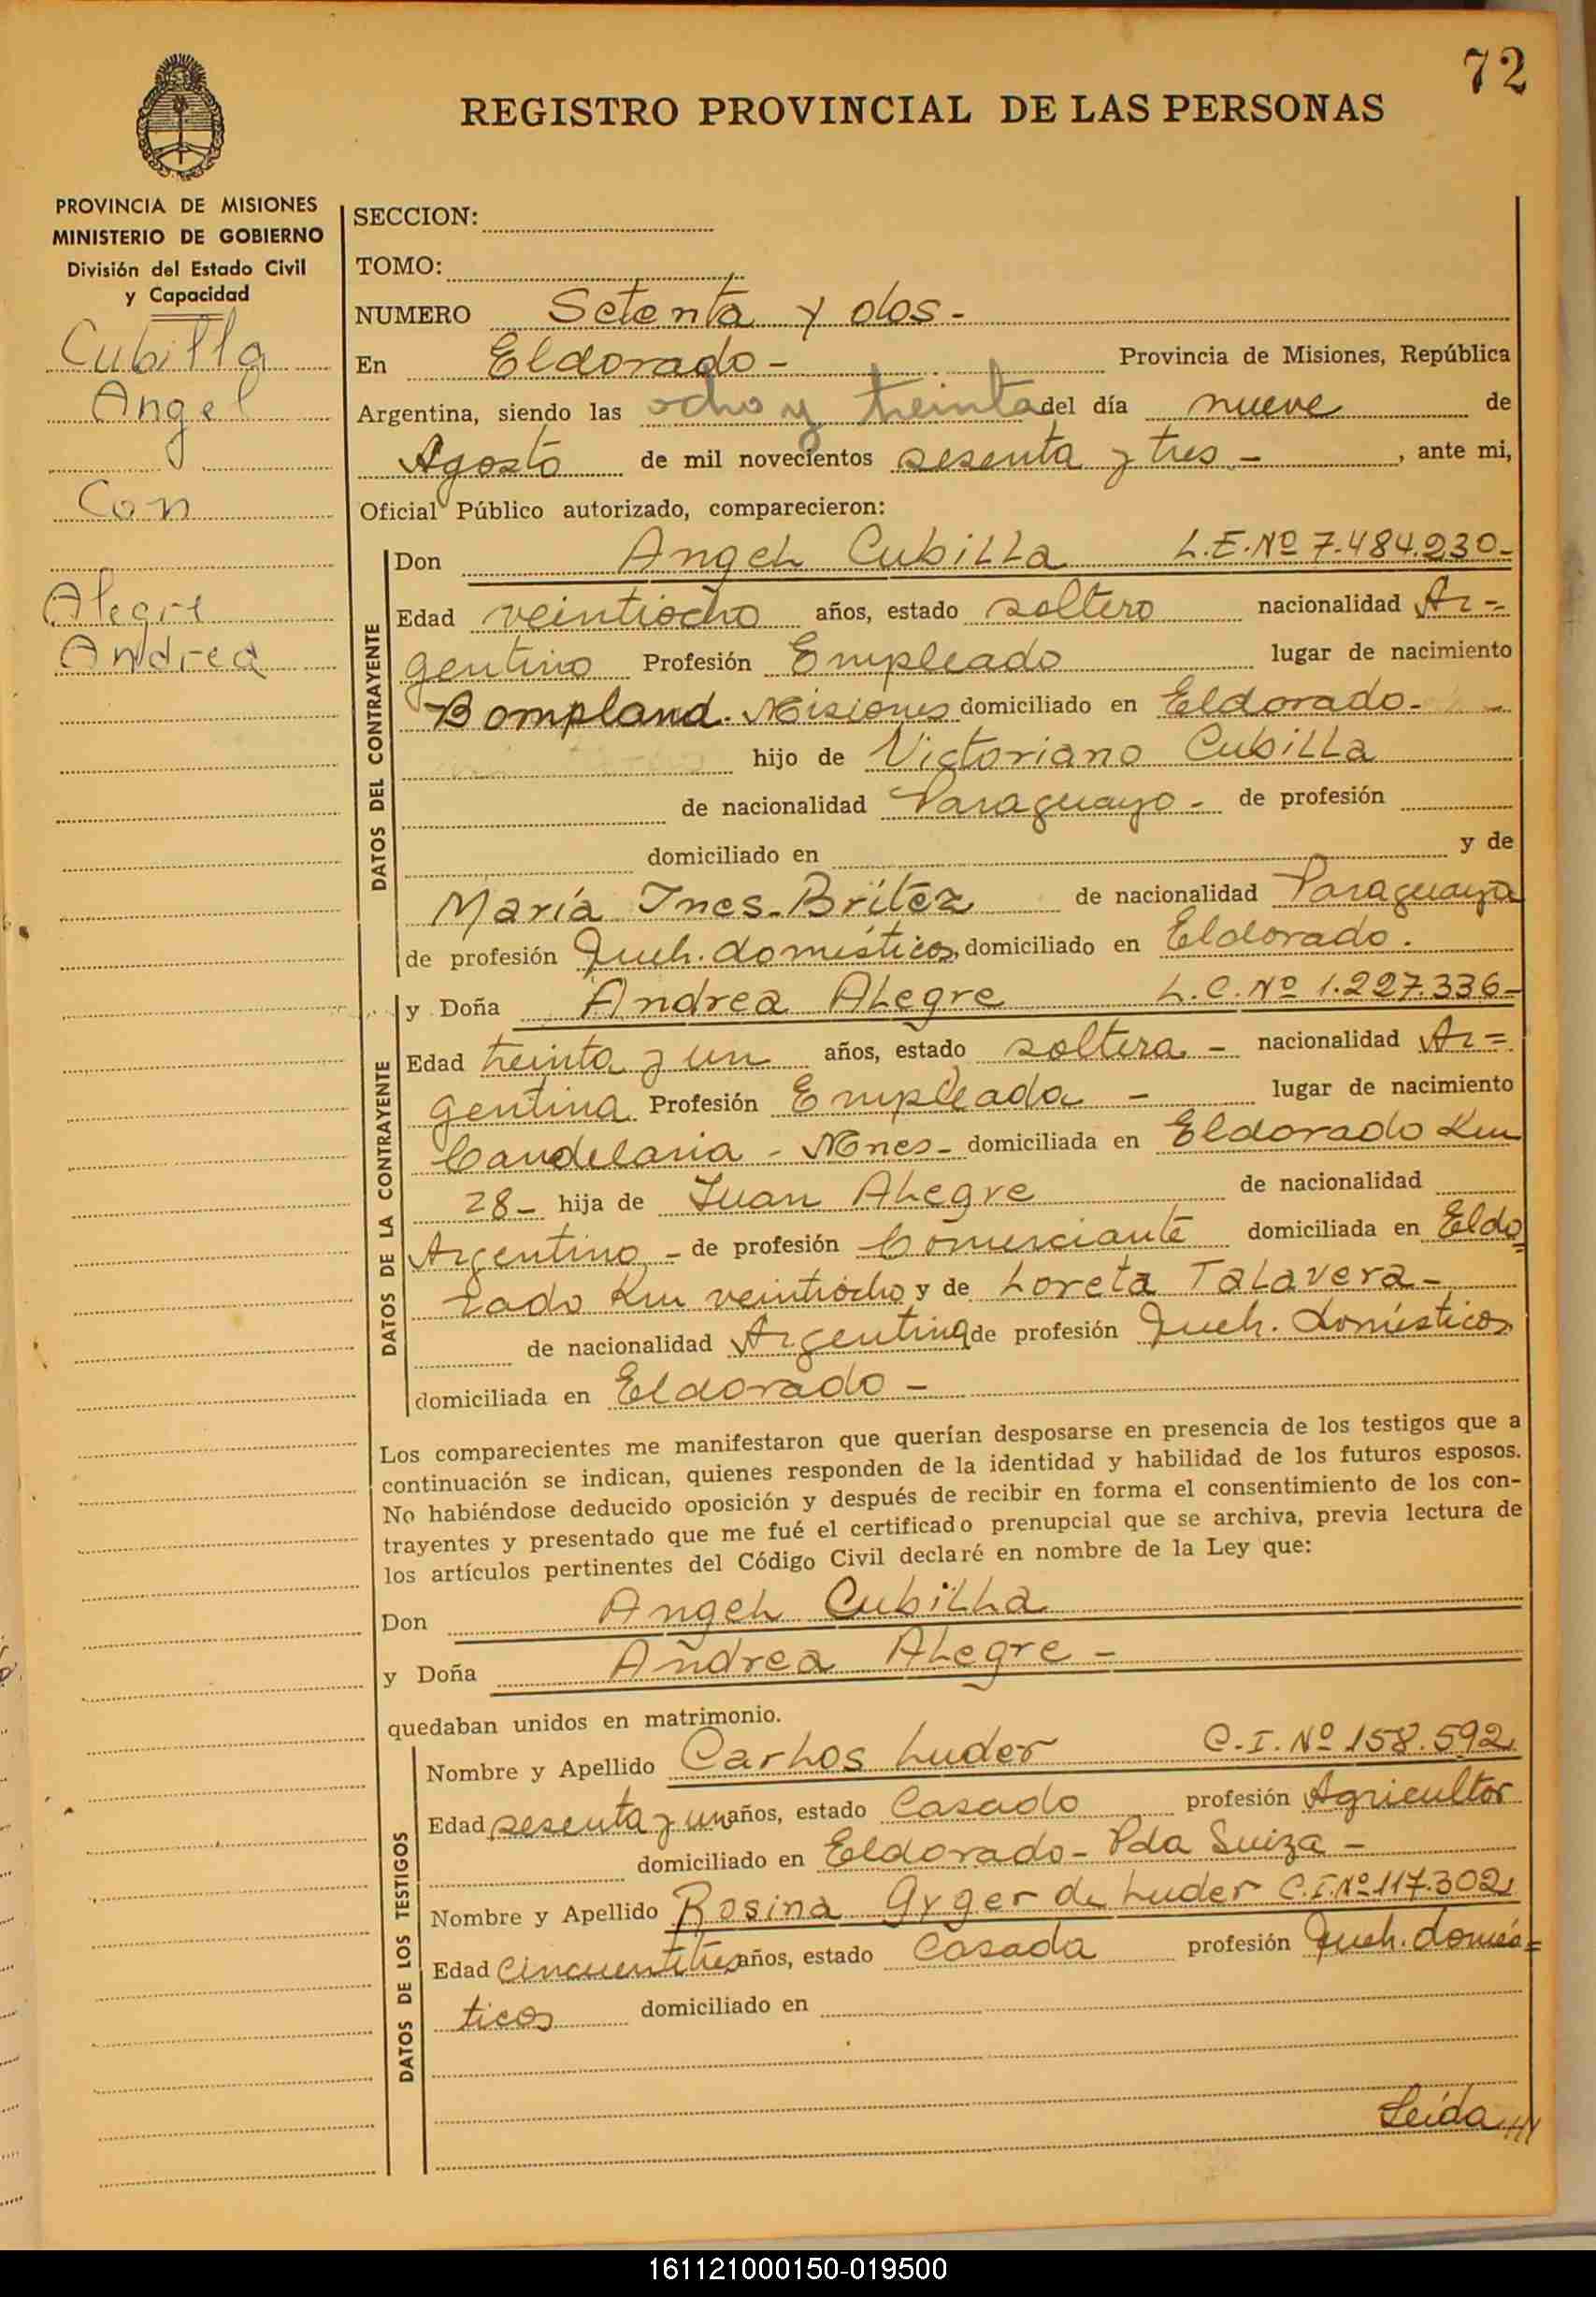 72
REGISTRO PROVINCIAL DE LAS PERSONAS
PROVINCIA DE MISIONES
MINISTERIO DE GOBIERNO
División del Estado Civil
y Capacidad
Cubilla
Angel
Con
Alegre
Andrea
SECCION:
TOMO:
NUMERO Setenta y dos -
En Eldorado - Provincia de Misiones, República
Argentina, siendo las ocho y treinta del día nueve de
Agosto de mil novecientos sesenta y tres -, ante mi,
Oficial Público autorizado, comparecieron:
DATOS DEL CONTRAYENTE
Don Angel Cubilla L.E.Nº 7.484.230-
Edad veintiocho años, estado soltero nacionalidad Ar=
gentino Profesión Empleado lugar de nacimiento
Bompland. Misiones domiciliado en Eldorado-
hijo de Victoriano Cubilla
de nacionalidad Paraguayo - de profesión
domiciliado en y de
María Ines Britez de nacionalidad Paraguaya
de profesión Queh. domésticos, domiciliado en Eldorado.
DATOS DE LA CONTRAYENTE
y Doña Andrea Alegre L.C.Nº 1.227.336-
Edad treinta y un años, estado soltera - nacionalidad Ar=
gentina Profesión Empleada - lugar de nacimiento
Candelaria - Mnes - domiciliada en Eldorado Km
28 - hija de Juan Alegre de nacionalidad
Argentino - de profesión Comerciante domiciliada en Eldo
rado Km veintiocho y de Loreta Talavera -
de nacionalidad Argentina de profesión Queh. domésticos
domiciliada en Eldorado -
Los comparecientes me manifestaron que querían desposarse en presencia de los testigos que a
continuación se indican, quienes responden de la identidad y habilidad de los futuros esposos.
No habiéndose deducido oposición y después de recibir en forma el consentimiento de los con-
trayentes y presentado que me fué el certificado prenupcial que se archiva, previa lectura de
los artículos pertinentes del Código Civil declaré en nombre de la Ley que:
Don Angel Cubilla
y Doña Andrea Alegre -
quedaban unidos en matrimonio.
DATOS DE LOS TESTIGOS
Nombre y Apellido Carlos Luder C.I.Nº 158.592
Edad sesenta y un años, estado Casado profesión Agricultor
domiciliado en Eldorado - Pda Suiza -
Nombre y Apellido Rosina Gyger de Luder C.I.Nº 117.302
Edad cincuentitres años, estado Casada profesión Queh. domés=
ticos domiciliado en
Leída
161121000150-019500